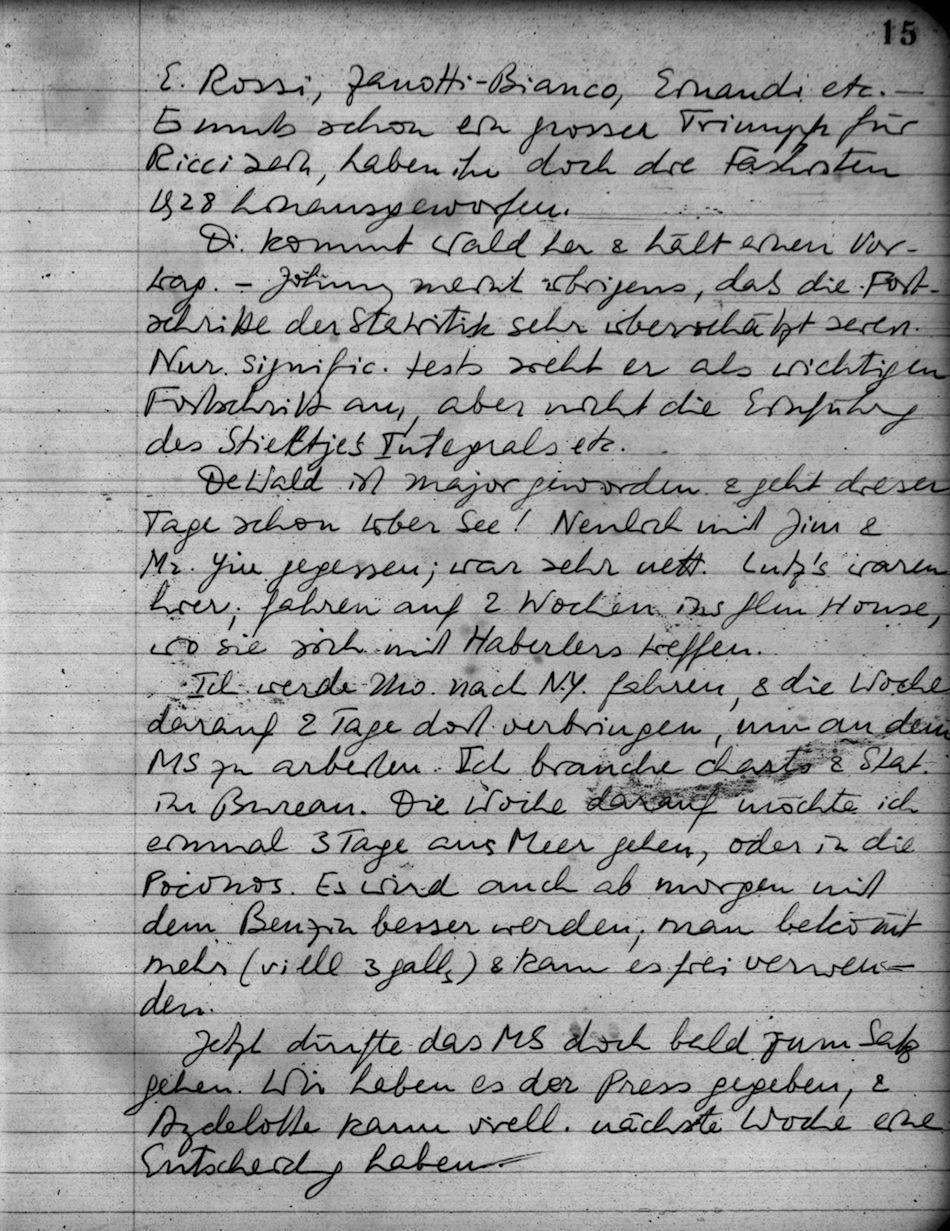 15
E. Rossi, Zanotti-Bianco, Einaudi etc. –
Es muss schon ein grosser Triumph für
Ricci sein, haben ihn doch die Fashisten
1928 hinausgeworfen.
Di. kommt Wald her & hält einen Vor-
trag. – Johnny meint übrigens, das die Fort-
schritte der Statistik sehr überschätzt seien.
Nur signific. tests sieht er als wichtigen
Fortschritt an, aber nicht die Einführung
des Stieltjes Integrals etc.
DeWald ist major geworden & geht dieser
Tage schon über See! Neulich mit Jim &
Mr. Yiu gegessen; war sehr nett. Lutz's waren
hier; fahren auf 2 Wochen ins Glen House,
wo sie sich mit Haberlers treffen.
Ich werde Mo. nach N.Y. fahren, & die Woche
darauf 2 Tage dort verbringen, um an dem
MS zu arbeiten. Ich brauche charts & Stat.
im Bureau. Die Woche darauf möchte ich
einmal 3 Tage ans Meer gehen, oder in die
Poconos. Es wird auch ab morgen mit
dem Benzin besser werden; man bekommt
mehr (viell 3 galls) & kann es frei verwen-
den.
Jetzt dürfte das MS doch bald zum Satz
gehen. Wir haben es der Press gegeben, &
Aydelotte kann viell. nächste Woche eine
Entscheidung haben. –